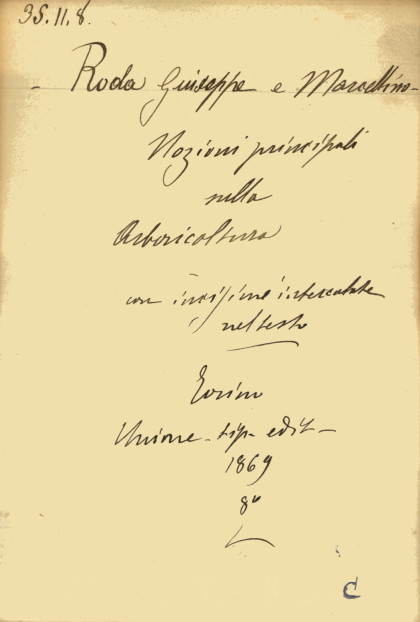 35.11.8.
- Roda Giuseppe e Marcellino -
Nozioni principali
sulla
Arboricoltura
con incisioni intercalate
nel testo
Torino
Unione - tip - edit -
1869
8º
C